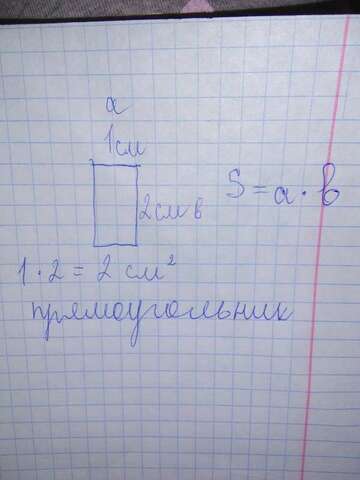 a
1см
2см в
S = a · в
1 · 2 = 2 см²
прямоугольник